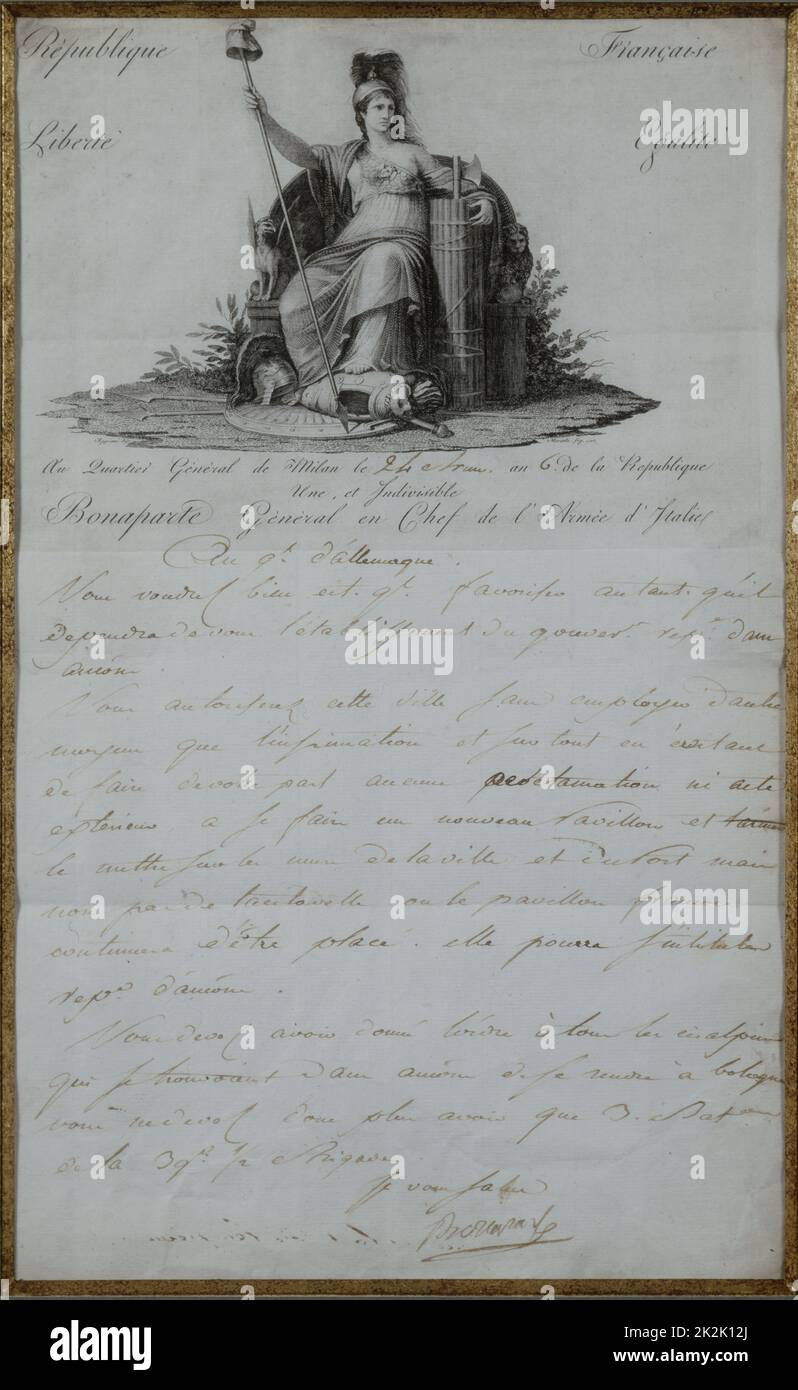 République Française
Liberté Égalité
Au Quartier Général de Milan le 24 Brum. an 6 de la Republique
Une, et Indivisible
Bonaparte Général en Chef de l'Armée d'Italie
Au gl. d'allemagne.
Vous voudrez bien cit. gl. favoriser autant qu'il
dependra de vous l'etablissement du gouver.t rep.n d'an
ancône.
Vous autoriserez cette ville sans employer d'autre
moyen que l'insinuation et surtout en évitant
de faire de votre part aucune proclamation ni acte
extérieur a se faire un nouveau Pavillon et
le mettre sur les murs de la ville et du Port mais
non pas de la citadelle ou le pavillon françois
continuera d'être placé. elle pourra s'intituler
rep.e d'ancône.
Vous devez avoir donné l'ordre à tous les cisalpins
qui se trouvoient dans ancône de se rendre à bologne
vous ne devez donc plus avoir que 3. Bat.ons
de la 39e. 1/2 Brigade.
Je vous salue
Bonaparte
alamy
Image ID: 2K2K12J
www.alamy.com